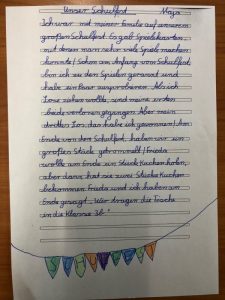 Unser Schulfest Maja
Ich war mit meiner Familie auf unserem
großen Schulfest. Es gab Spielekarten,
mit denen man sehr viele Spiele machen
konnte! Schon am Anfang vom Schulfest
bin ich zu den Spielen gerannt und
habe ein Paar ausprobieren. Als ich
Lose ziehen wollte, sind meine ersten
beide verloren gegangen. Aber mein
drittes Los, das habe ich gewonnen! Am
Ende von dem Schulfest haben wir im
großen Stück getrommelt! Frieda
wollte am Ende ein Stück Kuchen haben,
aber dann hat sie zwei Stücke Kuchen
bekommen. Frieda und ich haben am
Ende gesagt: „Wir tragen die Tische
in die Klasse 3b."